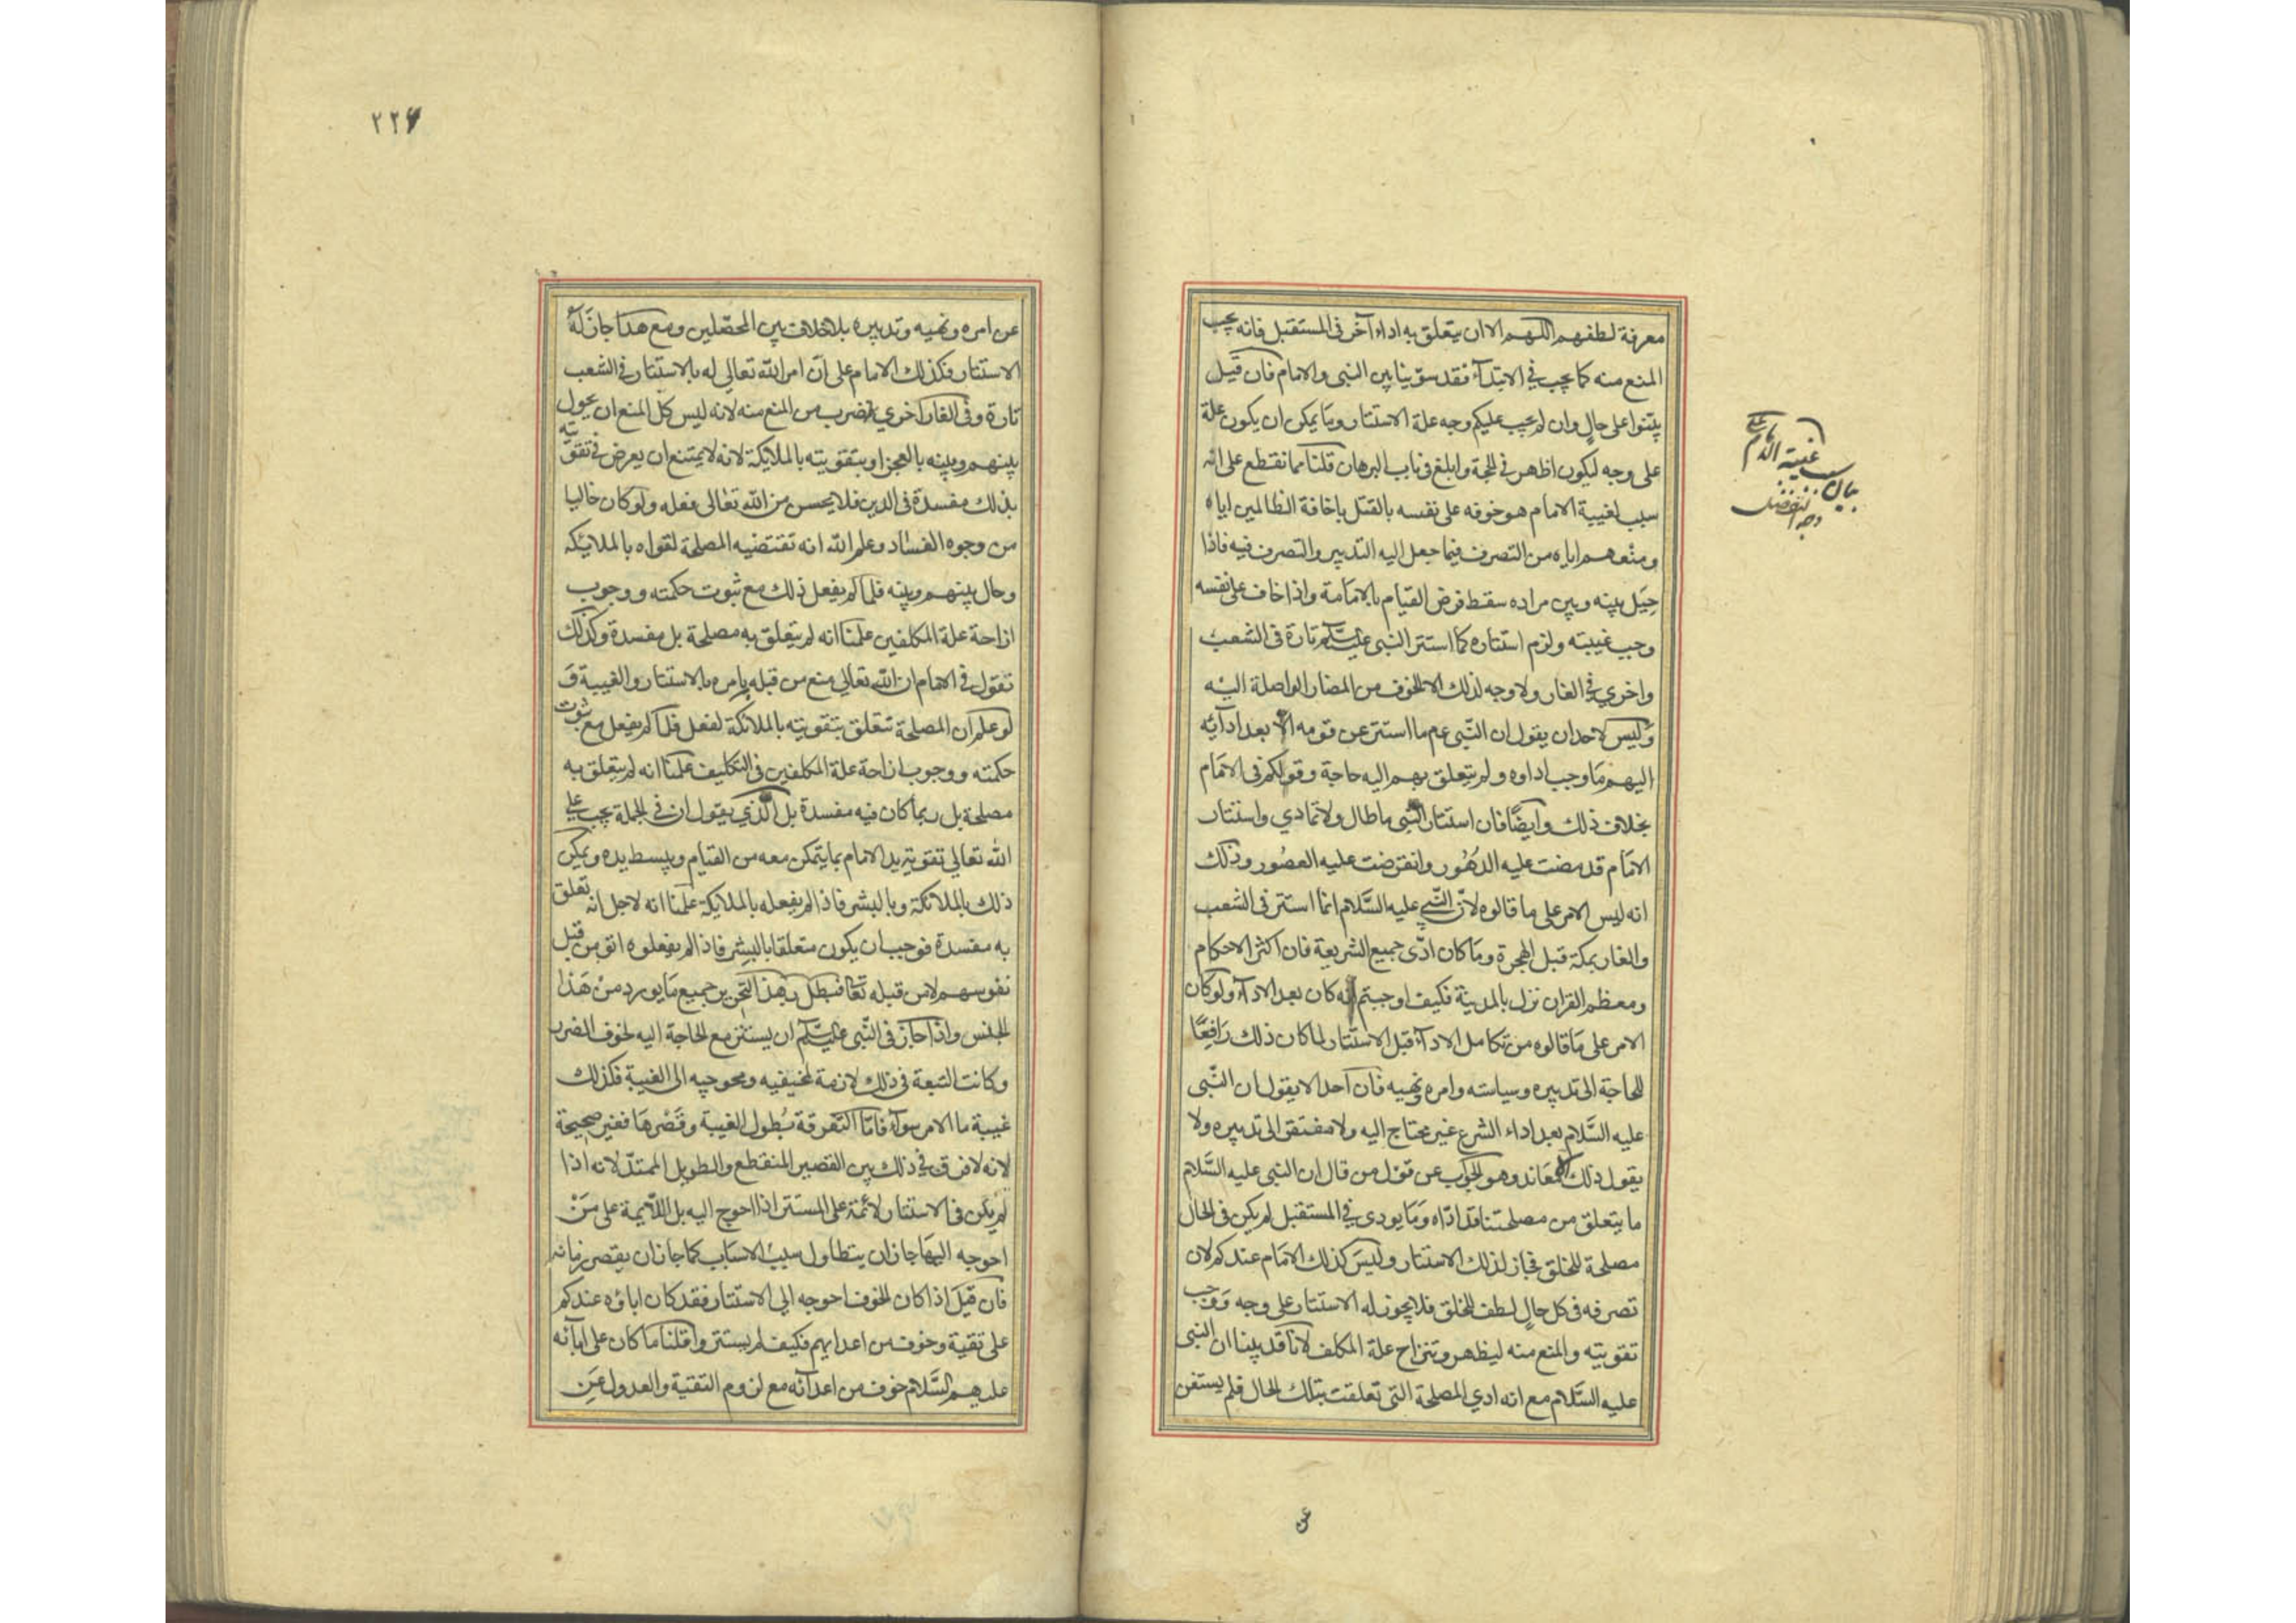 معرفة لطفهم اللهم الا ان يتعلق به اداء آخر فى المستقبل فانه يجب
المنع منه كما يجب فى الابتدآء فقد سوينا بين النبى والامام فان قيل
بينوا على حالٍ وان لم يجب عليكم وجه علة الاستتار وما يمكن ان يكون علة
على وجه ليكون اظهر فى الحجة وابلغ فى باب البرهان قلنا مما نقطع على انه
سبب لغيبة الامام هو خوفه على نفسه بالقتل باخافة الظالمين اياه
ومنعهم اياه من التصرف فيما جعل اليه التدبير والتصرف فيه فاذا
حِيَل بينه وبين مراده سقط فرض القيام بالامامة واذا خاف على نفسه
وجب غيبته ولزم استتاره كما استتر النبى عليه السلم تارة فى الشعب
واخري فى الغار ولا وجه لذلك الا الخوف من المضار الواصلة اليْه
وَليس لاحد ان يقول ان النّبى عم ما استتر عن قومه الا بعد ادآئه
اليهم مَا وجب اداوه ولم يتعلق بهم اليه حاجة وقولكم فى الامَام
بخلاف ذلك وايضًا فان استتار النّبى ما طال ولا تمادي واستتار
الامَام قد مضت عليه الدهُور وانقرضت عليه العصُور وذلك
انه ليس الامر على ما قالوه لانّ النّبي عليه السَّلام انما استتر فى الشعب
والغار بمكة قبل الهجرة ومَا كان ادّى جميع الشريعة فان اكثر الاحكام
ومعظم القران نزل بالمدينة فكيف اوجبتم انّه كان بعد الادآء ولو كان
الامر على مَا قالوه من تكامل الادآء قبل الاستتار لما كان ذلك رَافِعًا
للحاجة الى تدبيره وسياسته وامره ونهيه فان احدا لا يقول ان النّبى
عليه السَّلام بعد اداء الشرع غير محتاج اليه ولا مفتقر الى تدبيره ولا
يقول ذلك الا معَاند وهو الجواب عن قوْل من قال ان النبى عليه السَّلام
ما يتعلق من مصلحتنا قد ادّاه وَمَا يودى فى المستقبل لم يكن فى الحال
مصلحة للخلق فجاز لذلك الاستتار وليسَ كذلك الامَام عندكم لان
تصرفه فى كل حالٍ لطف للخلق فلا يجوز له الاستتار على وجه وَوجب
تقويته والمنع منه ليظهر وتنزاح علة المكلف لانا قد بينا ان النبى
عليه السَّلام مع انه ادي المصلحة التى تعلقت بتلك الحال فلم يستغن
عن
بيان سبب غيبة الامام
٢٢٤
عن امره ونهيه وتدبيره بلا خلاف بين المحصّلين ومع هذا جاز لَهُ
الاستتار فكذلك الامام على انّ امر الله تعالى له بالاستتار فى الشعب
تارة وفى الغار اخري فضرب من المنع منه لانه ليس كلّ المنع ان يحول
بينهم وبينه بالعجز او بتقويته بالملايكة لانه لا يمتنع ان يعرض فى تقويته
بذلك مفسدة فى الدين فلا يحسن من الله تعالى فعله ولو كان خاليا
من وجوه الفساد وعلم الله انه تقتضيه المصلحة لقواه بالملايكه
وحال بينهم وبينه فلما لم يفعل ذلك مع ثبوت حكمته ووجوب
ازاحة علة المكلفين علمنا انه لم يتعلق به مصلحة بل مفسدة وكذلك
نقول فى الامام ان الله تعالي منع من قبله بامره بالاستتار والغيبة وَ
لو علم ان المصلحة تتعلق بتقويته بالملائكة لفعل فلما لم يفعل مع ثبوت
حكمته ووجوب ازاحة علة المكلفين فى التكليف علمنا انه لم يتعلق به
مصلحة بل ربما كان فيه مفسدة بل الذي يقول ان فى الجملة يجب على
الله تعالي تقوية يد الامام بما يتمكن معه من القيام ويبسط يده ويمكن
ذلك بالملائكة وبالبشر فاذا لم يفعله بالملايكة علمنا انه لاجل انه تعلق
به مفسدة فوجب ان يكون متعلقا بالبشر فاذا لم يفعلوه اتو من قبل
نفوسهم لا من قبله تعا فبطل بهذا التحرير جميع مَا يورد منْ هَذا
الجنس واذا جاز فى النّبى عليه السلم ان يستتر مع الحاجة اليه لخوف الضرر
وكانت التبعة فى ذلك لازمة لمخيفيه ومحوجيه الى الغيبة فكذلك
غيبة ما الامر سوآء فامّا التّفرقة بُطول الغيبة وقَصْرهَا فغير صحيحة
لانه لا فرق فى ذلك بين القصير المنقطع والطويل الممتدّ لانه اذا
لم يكن فى الاستتار لائمة على المستتر اذا احوج اليه بل اللّايمة على مَنْ
احوجه اليهَا جاز ان يتطاول سبب الاسباب كما جاز ان يقصر زمانه
فان قيَل اذا كان الخوف احوجه الى الاستتار فقد كان اباؤه عندكم
على تقية وخوف من اعدايهم فكيف لم يستتروا قلنا ما كان على ابآئه
عليهم السَّلام خوف من اعدآئه مع لزوم التقية والعدول عَن